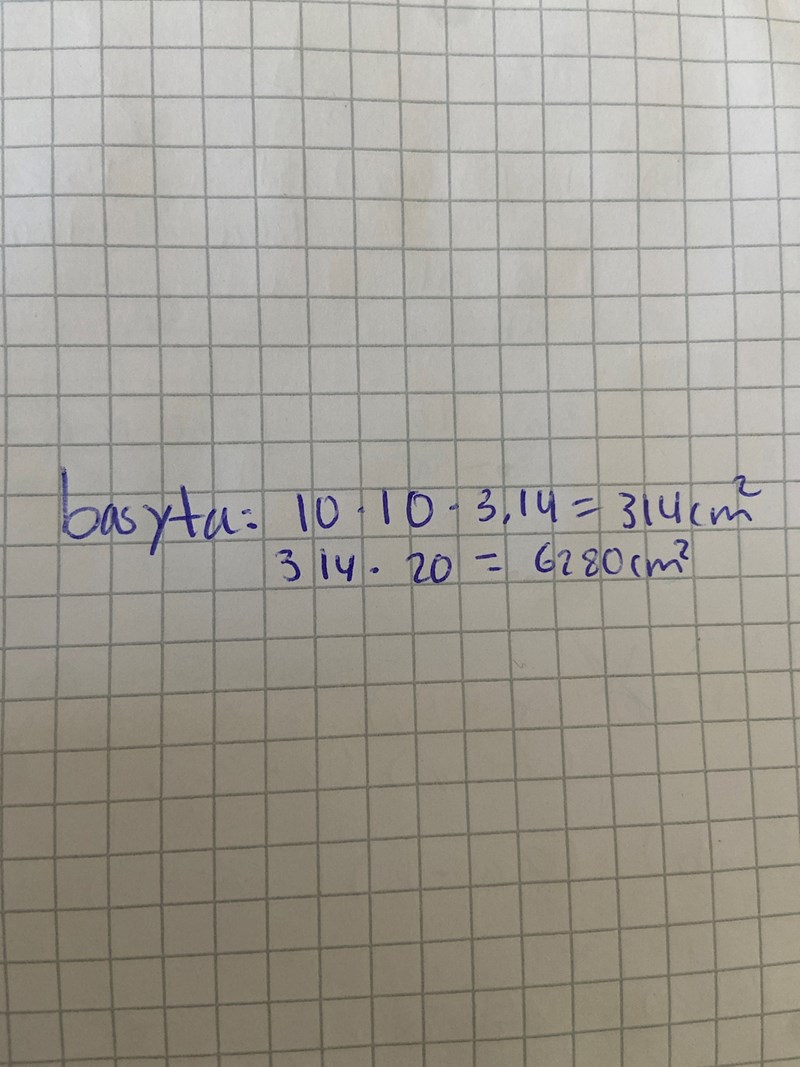 basyta: 10 · 10 · 3,14 = 314cm²
314 · 20 = 6280cm²